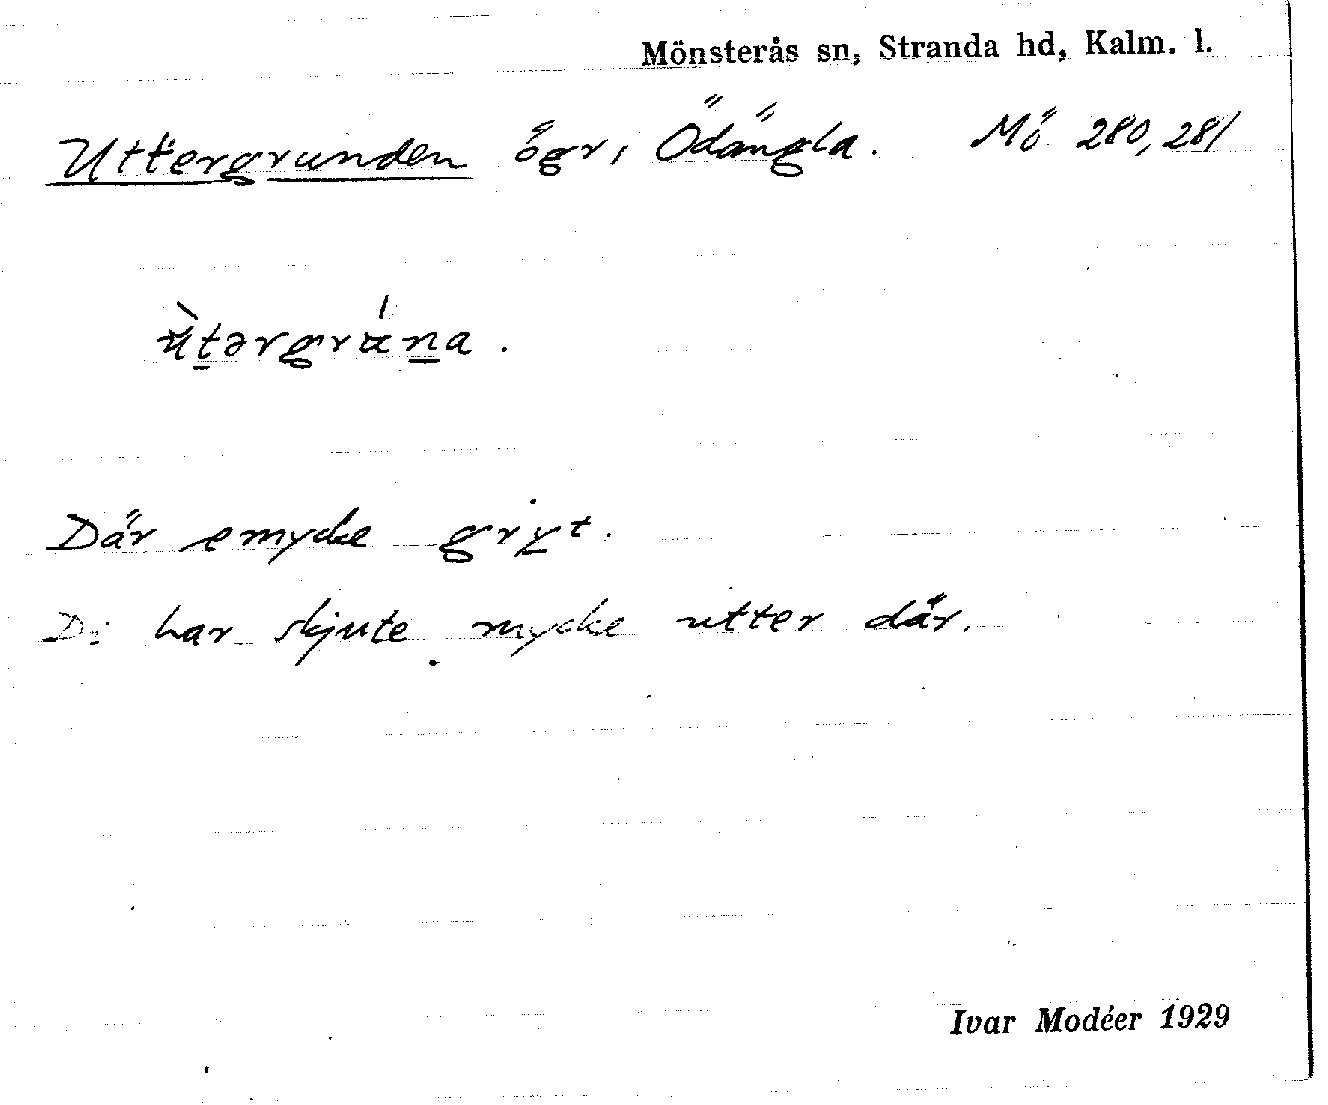 Mönsterås sn, Stranda hd, Kalm. l.
Uttergrunden ögr, Ödängla. Mö 280, 281
ùtərgrúna.
Där emycke gryt.
Di har skjute mycke utter där.
Ivar Modéer 1929